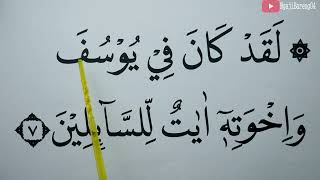 NgajiBareng04
۞ لَقَدْ كَانَ فِيْ يُوْسُفَ
وَاِخْوَتِهٖٓ اٰيٰتٌ لِّلسَّاۤىِٕلِيْنَ ٧